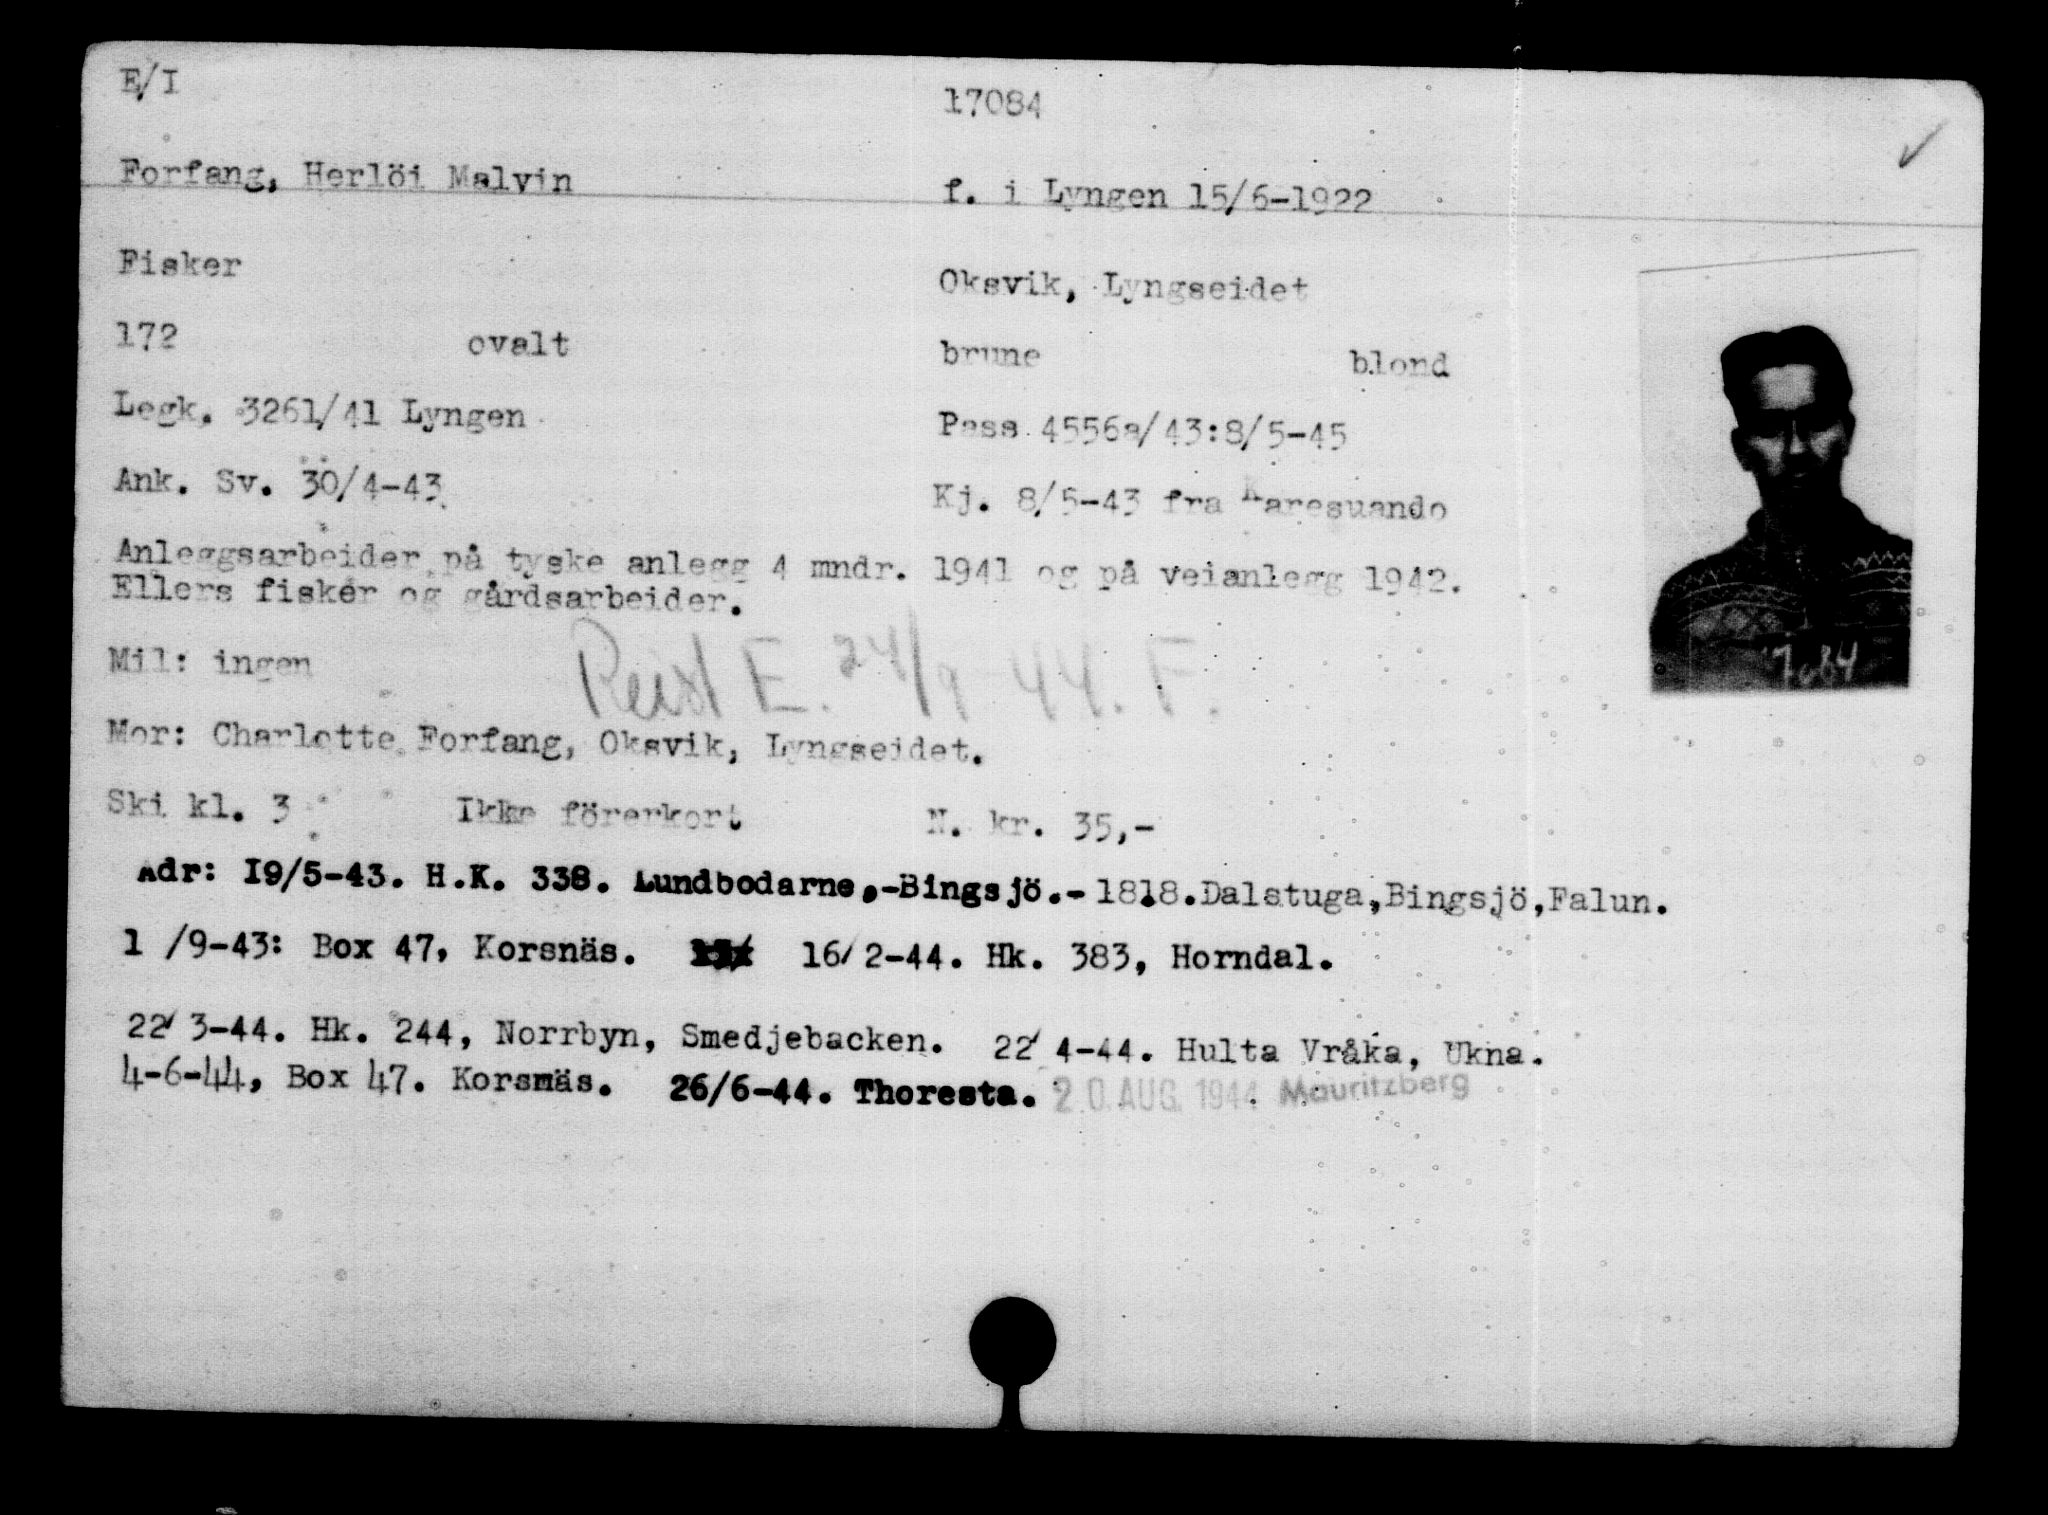 E/I 17084
Forfang, Herlöi Malvin f. i Lyngen 15/6-1922
Fisker Oksvik, Lyngseidet
172 ovalt brune blond
Legk. 3261/41 Lyngen Pass 4556a/43:8/5-45
Ank. Sv. 30/4-43 Kj. 8/5-43 fra Karesuando
Anleggsarbeider på tyske anlegg 4 mndr. 1941 og på veianlegg 1942.
Ellers fisker og gårdsarbeider.
Mil: ingen
Reist E. 24/9-44. F.
17084
Mor: Charlotte Forfang, Oksvik, Lyngseidet.
Ski kl. 3 Ikke förerkort N. kr. 35,-
Adr: I9/5-43. H.K. 338. Lundbodarne,-Bingsjö.- 1818.Dalstuga,Bingsjö,Falun.
1 /9-43: Box 47, Korsnäs. 16/2-44. Hk. 383, Horndal.
22/3-44. Hk. 244, Norrbyn, Smedjebacken. 22/4-44. Hulta Vråka, Ukna.
4-6-44, Box 47. Korsnäs. 26/6-44. Thoresta. 20. AUG. 1944 Mauritzberg